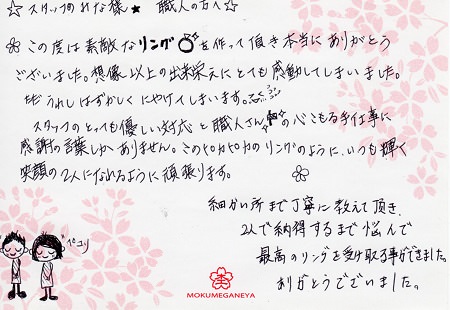 ☆スタッフの 様★ 職人の方へ☆
この度は素敵なリング💍を作って頂き本当にありがとう
ございました。想像以上の出来栄えにとても感動してしまいました。
うれしはずかしくにやけてしまいます。
スタッフのとっても優しい対応と職人さんの心こもる手仕事に
感謝の言葉しかありません。このピカピカのリングのように、いつも輝く
笑顔の2人になれるように頑張ります。
細かい所まで丁寧に教えて頂き、
2人で納得するまで悩んで
最高のリングを受け取る事ができました。
ありがとうございました。
ペコリ
MOKUMEGANEYA